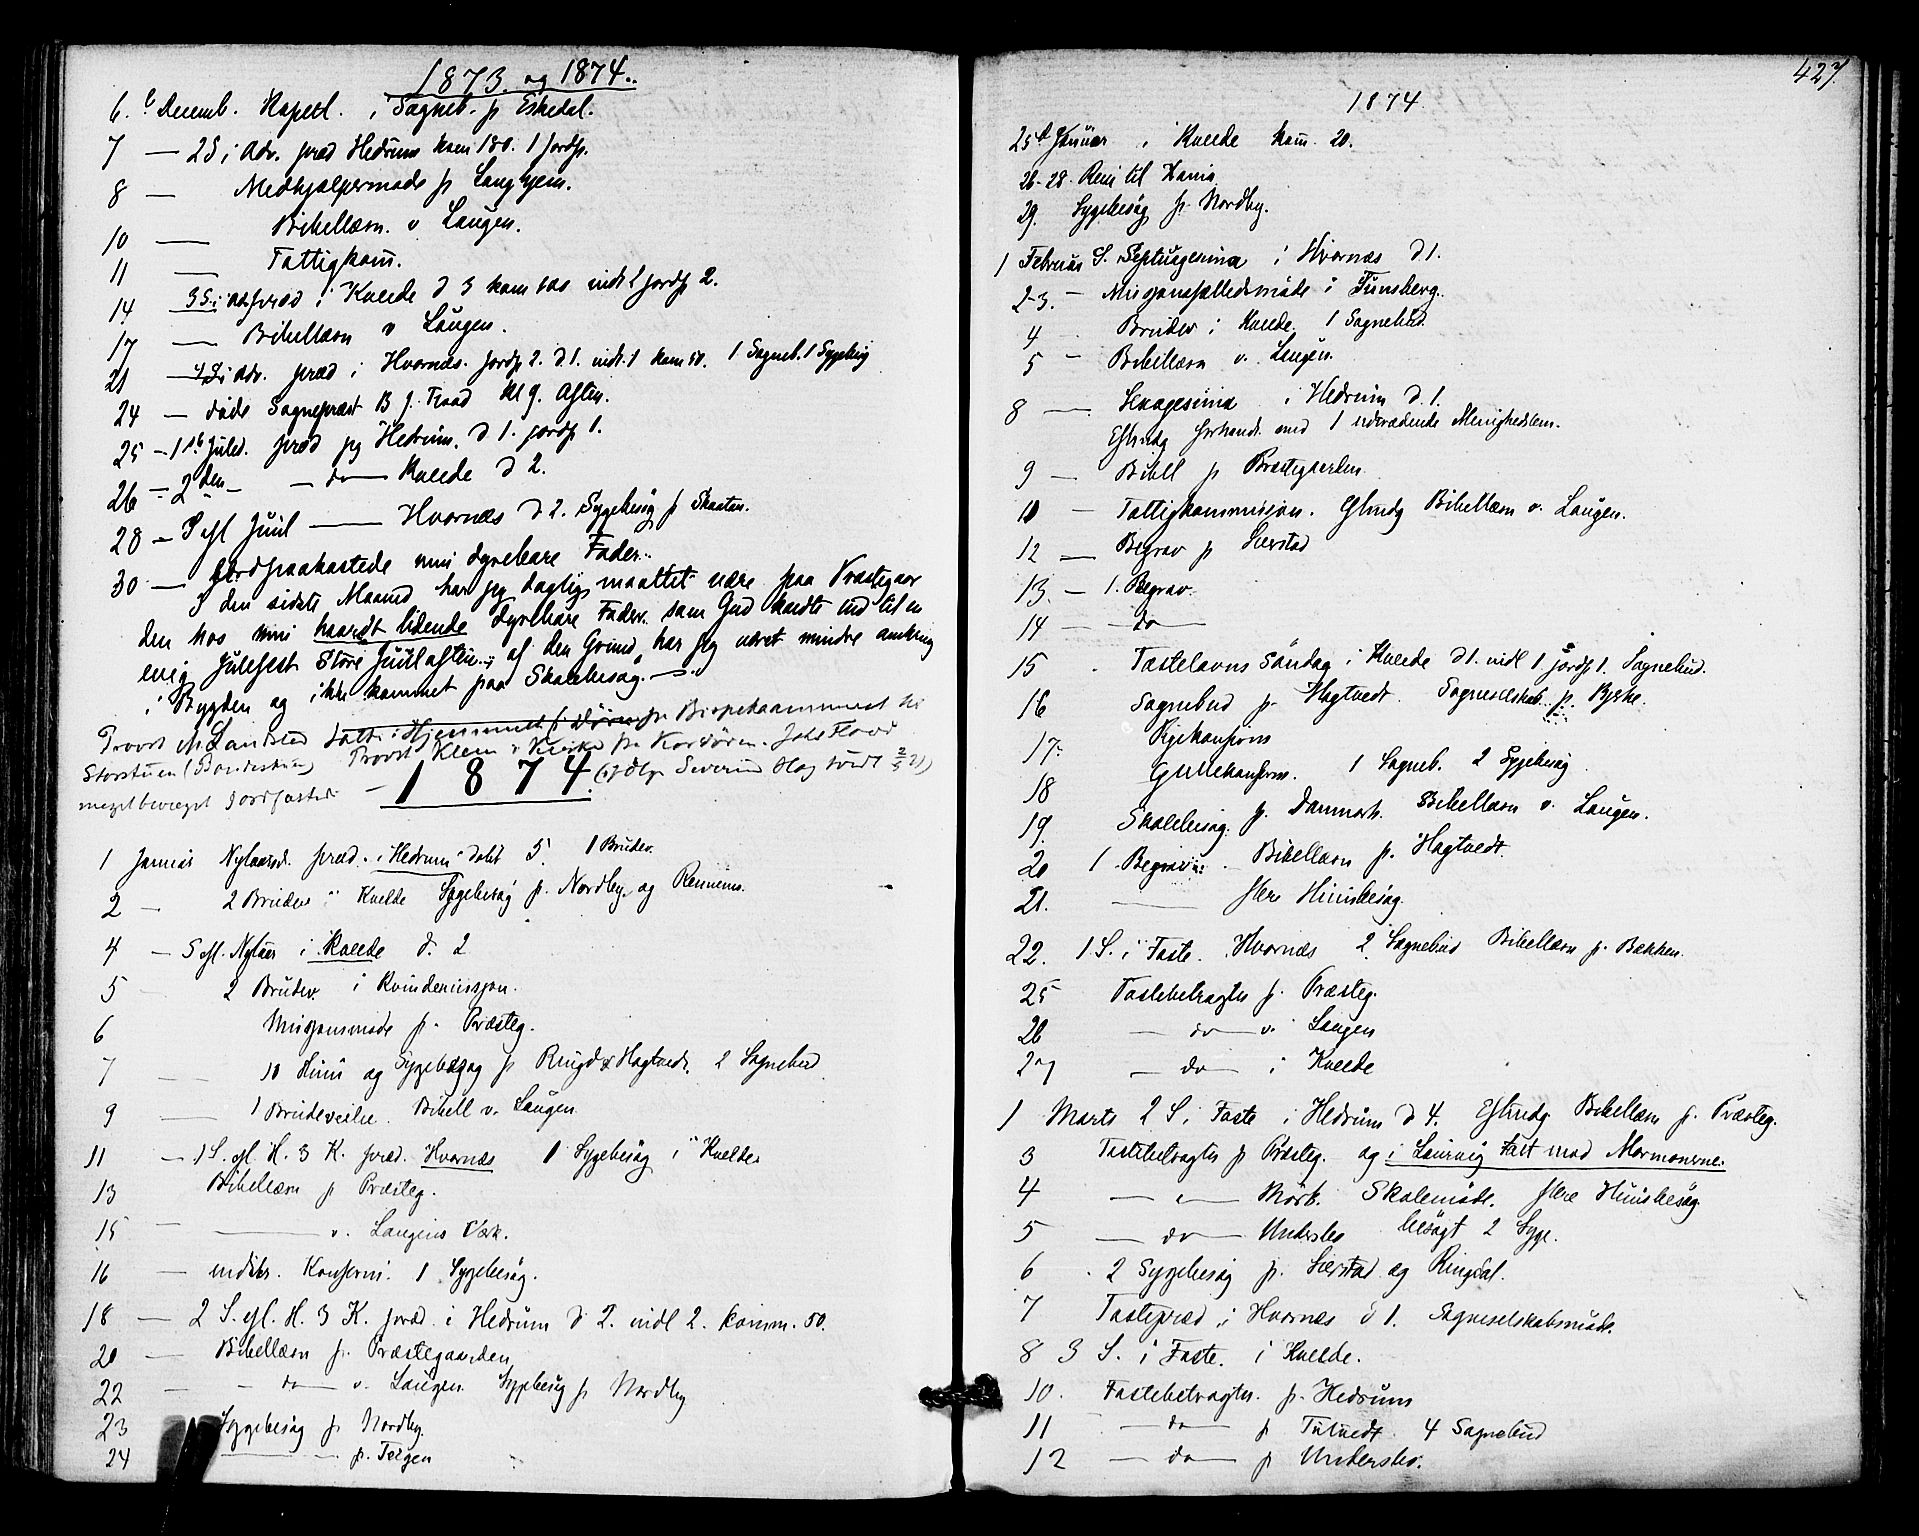 1873. og 1874.
6.e Decemb. Kapell. i Sogneb. p Eskedal.
7 — 2 S i Adv. præd Hedrum kom 180. 1 Jordf.
8 — Medhjælpermøde p
10 — Bibellæsn. v Laugen.
11 — Fattigkom.
14 — 3 S. i præd i Kvelde d 3 kom indt 1 jordf 2.
17 — Bibellæsn v Laugen.
21 — 4 S i Adv. præd i Hvarnæs. jordf 2. d 1. indt. 1 kom 50. 1 Sogneb. 1 Sygebesøg
24 — døde Sognepræst B J. Flood Kl 9. Aften.
25 — 1ste Juled. præd paa Hedrum. d 1. jordf 1.
26 — 2den — — do — Kvelde d 2.
28 — S efl Juul — Hvarnæs d 2. Sygebesøg p Skaaten.
30 — Jordpaakastede min dyrebare Fader..
I den sidste Maaned har jeg daglig maattet være paa Præstegaar
den hos min haardt lidende dyrebare Fader som Gud kaldte ind til en
evig Julefest Store Juulaften; af den Grund har jeg været mindre omkring
i Bygden og ikke kommet paa Skolebesøg. —
Provst M. Landsted talte i Hjemmet
Storstuen (Bondestuen) Provst Klem i Kirke
meget bevæget Jordfæsted
— 1874.
1 Januar Nytaarsd. præd. i Hedrum dobt 5. 1 Brudev.
2 — 2 Brudev i Kvelde Sygebesøg p. Nordby. og
4 — S efl. Nytaar i Kvelde d. 2
5 2 Brudev. i Kvindemissjon.
6 Missjonsmøde p. Præsteg.
7 — 10 Huus og Sygebesøg p Ringd & Hagtvedt. 2 Sognebud
9 — 1 Brudevielse. Bibell v. Laugen
11 — 1 S. efl. H. 3 K. præd. Hvarnæs 1 Sygebesøg i Kvelde
13 Bibellæsn p Præsteg.
15 — — v. Laugens Værk.
16 — indskr. Konfirm. 1 Sygebesøg.
18 — 2 S. efl. H. 3 K. præd. i Hedrum d 2. indl 2. komm. 50.
20 — Bibellæsn p. Præstegaarden
22 — — do — v. Laugen. Sygebesøg p Nordby
23 Sygebesøg p Nordby.
24 — p. Teigen
427
1874
25de Januar i Kvelde kom. 20.
26-28. Reise til
29. Sygebesøg p. Nordby.
1 Februar S. Septuagesima i Hvarnæs d 1.
2-3. — Missjonsfællesmøde i Tunsberg.
4 Brudev i Kvelde. 1 Sognebud.
5 — Bibellæsn v. Laugen.
8 — Sexagesima i Hedrum d. 1.
Eftmdg forhandl. med 1 udtrædende Menighedslem.
9 — Bibell p Præstegaarden.
10 — Fattigkommisjon. Eftmdg Bibellæsn v. Laugen.
12 — Begrav p Sierstad
13 — 1. Begrav.
14 — — do —
15 Fastelavns Søndag i Kvelde d 1. indl 1. jordf 1. Sognebud.
16 Sognebud p. Hagtvedt. Sogneselskab. p. Bjerke.
17 Pigekonfirm
18 Guttekonfirm. 1 Sogneb. 2 Sygebesøg
19. Skolebesøg. p. Danmark. Bibellæsn v. Laugen.
20 1 Begrav. Bibellæsn p. Hagtvedt.
21. — flere Huusbesøg.
22. 1 S. i Faste. Hvarnæs 2 Sognebud Bibellæsn p. Bakken.
25 Fastebetragtn p. Præsteg.
26 — do — v. Laugen
27 — do — i Kvelde
1 Marts 2 S. i Faste i Hedrum d 4. Eftmdg Bibellæsn p. Præsteg.
3 Fastebetragtn p Præsteg. og i Laurvig talt mod Mormonerne.
4 — — Mørk. Skolemøde. flere Huusbesøg
5 — do — Undersbo besøgt 2 Syge.
6 2 Sygebesøg p. Sierstad og Ringdal.
7 Fastepræd i Hvarnæs d 1. Sogneselskabsmøde.
8 3 S. i Faste. i Kvelde.
10. Fastebetragtn. p. Hedrum
11 — do — p Tutvedt. 4 Sognebud
12 — do — p Undersbo.